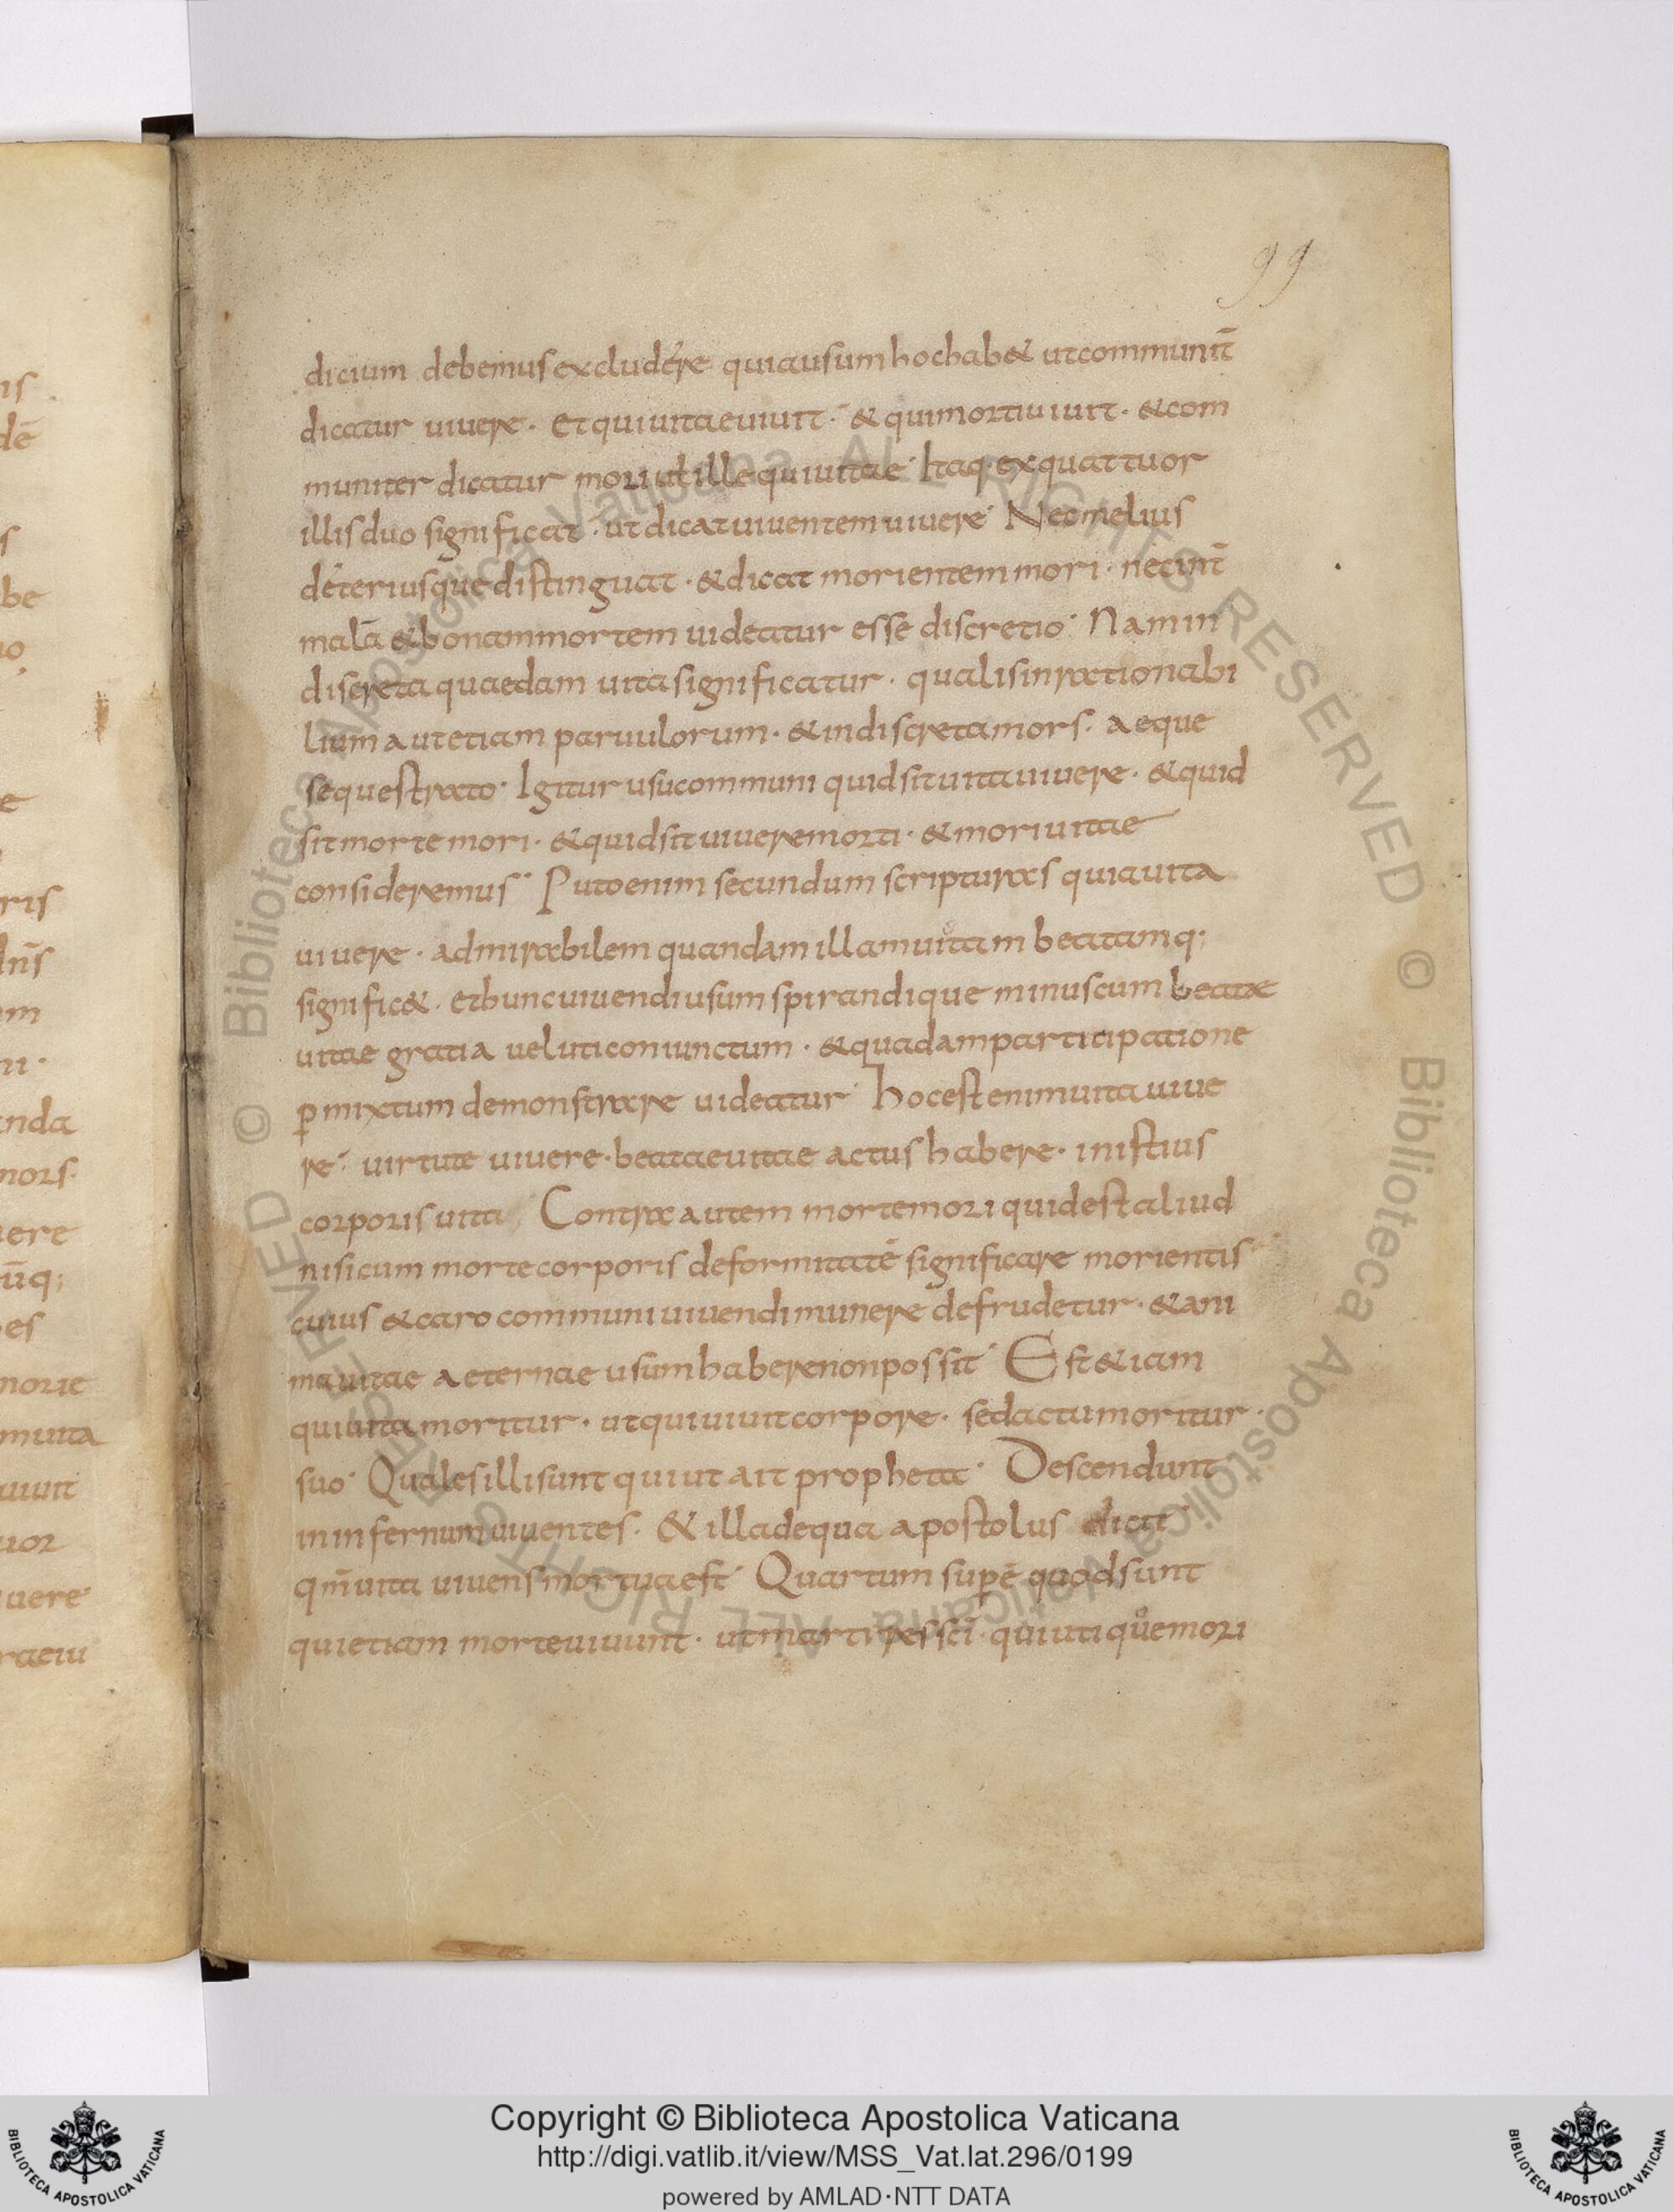 99
dicium debemus excludere quia usum hoc hab& ut communit̄
dicatur uiuere · et qui uitae uiuit · & qui morti uiuit · & com
muniter dicatur mori ut ille qui uitae · Itaq· ex quattuor
illis duo significat · ut dicat uiuentem uiuere · Neo melius
deteriusque distinguat · & dicat morientem mori · nec int̄
malā & bonam mortem uideatur esse discretio · Nam in
discreta quaedam uita significatur · qualis inrationabi
lium aut etiam paruulorum · & indiscreta mors · aeque
sequestrato · Igitur usu communi quid sit uita uiuere · & quid
sit morte mori · & quid sit uiuere morti · & mori uitae
consideremus · Puto enim secundum scripturas quia uita
uiuere · admirabilem quandam illam uitam beatamq;
signific& · et hunc uiuendi usum spirandique minus cum beatae
uitae gratia ueluti coniunctum · & quadam participatione
p̱mixtum demonstrare uideatur · hoc est enim uita uiue
re · uirtute uiuere · beatae uitae actus habere · in istius
corporis uita · Contra autem morte mori quid est aliud
nisi cum morte corporis deformitatē significare morientis
cuius & caro communi uiuendi munere defrudetur · & ani
ma uitae aeternae usum habere non possit · Est & iam
qui uita moritur · ut qui uiuit corpore · sed actu moritur ·
suo · Quales illi sunt qui ut ait propheta · Descendunt
in infernum uiuentes · & illa de qua apostolus dicit
qm̄ uita uiuens mortua est · Quartum supē quod sunt
qui etiam morte uiuunt · ut martires sc̄i · qui utique mori
is
dē
s
be
uo,
e
ris
lns̄
m
ni ·
nda
mors ·
uere
ūq;
es
morit
muita
uiuit
uor
uere
raeui
© Biblioteca Apostolica Vaticana ALL RIGHTS RESERVED © Biblioteca Apostolica Vaticana ALL RIGHTS RESERVED
BIBLIOTECA APOSTOLICA VATICANA
Copyright © Biblioteca Apostolica Vaticana
http://digi.vatlib.it/view/MSS_Vat.lat.296/0199
powered by AMLAD·NTT DATA
BIBLIOTECA APOSTOLICA VATICANA